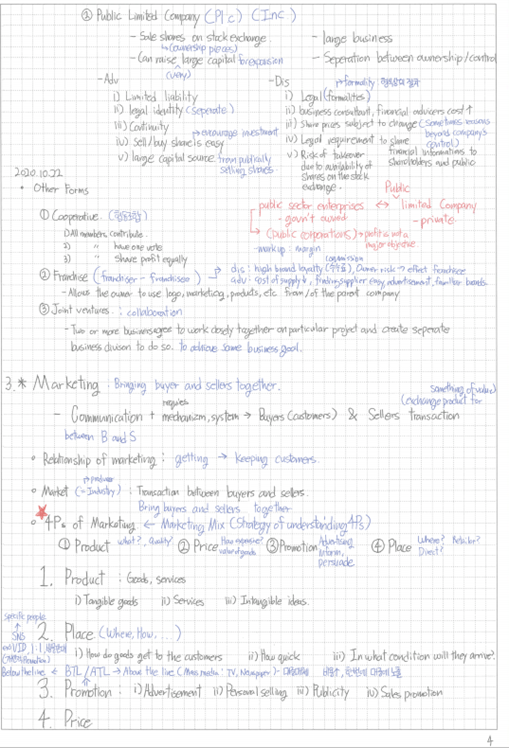 ② Public Limited Company (Plc) (Inc)
- Sale shares on stock exchange.
↳(ownership pieces)
- Can raise large capital for expansion
(very)
- large business
- Seperation between ownership/control
-Adv
i) Limited liability
ii) legal identity (seperate)
iii) Continuity
iv) Sell/buy share is easy
→ encourage investment
v) large capital source from publically selling shares
-Dis
↱formality:
i) Legal (formalities)
ii) business consultant, financial advicers cost↑
iii) Share prices subject to change (Sometimes reasons beyond company's control)
iv) Legal requirement to share financial informations to shareholders and public
v) Risk of takeover due to availability of shares on the stock exchange.
2020.10.22
• Other Forms
Public
public sector enterprises ↔ limited Company
- gov'n't owned - private
↳ (Public corporations) → profit is not a major objective
-markup : margin
① Cooperative. (협동조합)
1) All members contribute.
2) " have one vote
3) " Share profit equally
② Franchise (franchiser - franchisee)
dis : high brand loyalty Owner risk → effect franchise
adv : cost of supply↓, finding supplier easy, advertisement, familiar brands.
- Allows the owner to use logo, marketing, products, etc from/of the parent company
③ Joint ventures. : collaboration
- Two or more business agree to work closely together on particular project and create seperate
business divison to do so. to achieve same business goal.
3.* Marketing : Bringing buyer and sellers together.
something of value)
(exchange product for
requires
- Communication + mechanism, system → Buyers (customers) & Sellers transaction
between B and S
• Relationship of marketing : getting → keeping customers.
↱ producer
• Market (-Industry) : Transaction between buyers and sellers.
Bring buyers and sellers together
• 4Ps of Marketing ← Marketing Mix (Strategy of understanding 4Ps)
① Product what?, Quality? ② Price How expensive? value of goods ③ Promotion Advertising Inform, persuade ④ Place Where? Retailer? Direct?
1. Product : Goods, services
i) Tangible goods ii) Services iii) Intangible ideas.
specific people.
↑
SNS
2. Place (Where, How, ...)
i) How do goods get to the customers ii) How quick iii) In what condition will they arrive?
Below the line ← BTL / ATL → Above the line (Mass media : TV, Newspaper)
3. Promotion : i) Advertisement ii) Personal selling iii) Publicity iv) Sales promotion
4. Price
4